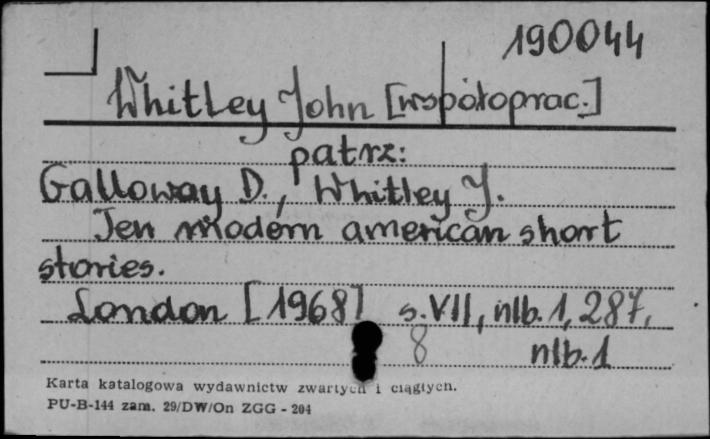 190044
Whitley John [współoprac.]
patrz:
Galloway D., Whitley J.
Ten modern american short
stories.
London [1968] s.VII, nlb.1, 287,
8 nlb.1
Karta katalogowa wydawnictw zwartych i ciągłych.
PU-B-144 zam. 29/DW/On ZGG - 204